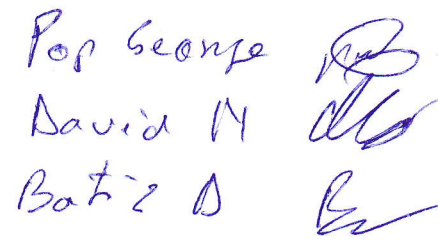 Pop George
David M
Batiz D